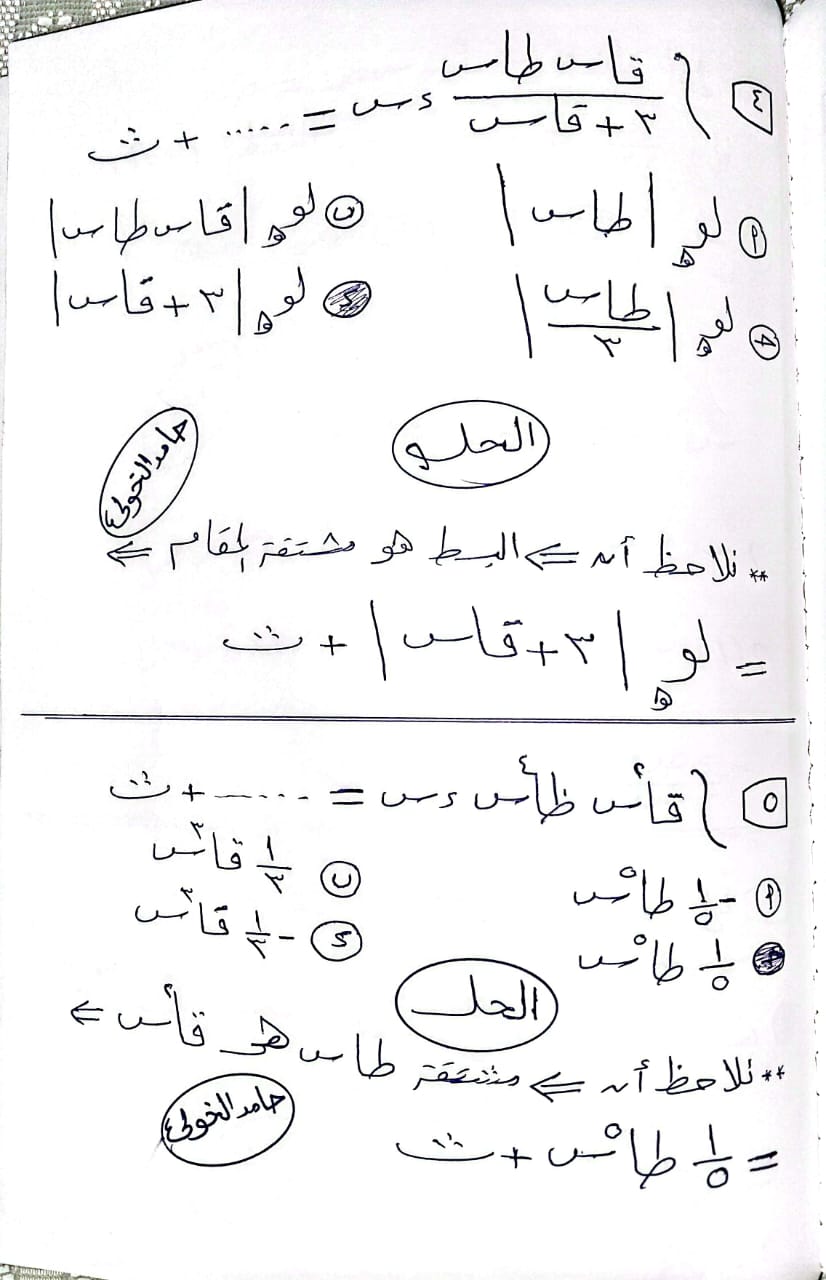 ٤ ∫ قاس طاس / ٣ + قاس ءس = ..... + ث
أ لوه |طاس|
ب لوه |قاس طاس|
ج لوه |طاس / ٣|
د لوه |٣ + قاس|
الحلـــ
حامد الخولى
** نلاحظ أن ⇐ البسط هو مشتقة المقام ⇐
= لوه |٣ + قاس| + ث
٥ ∫ قا٢س ظا٤س ءس = ...... + ث
أ -١/٥ طا٥س
ب ١/٣ قا٣س
ج ١/٥ طا٥س
د -١/٣ قا٣س
الحلـــ
** نلاحظ أن ⇐ مشتقة طاس هى قا٢س ⇐
حامد الخولى
= ١/٥ طا٥س + ث